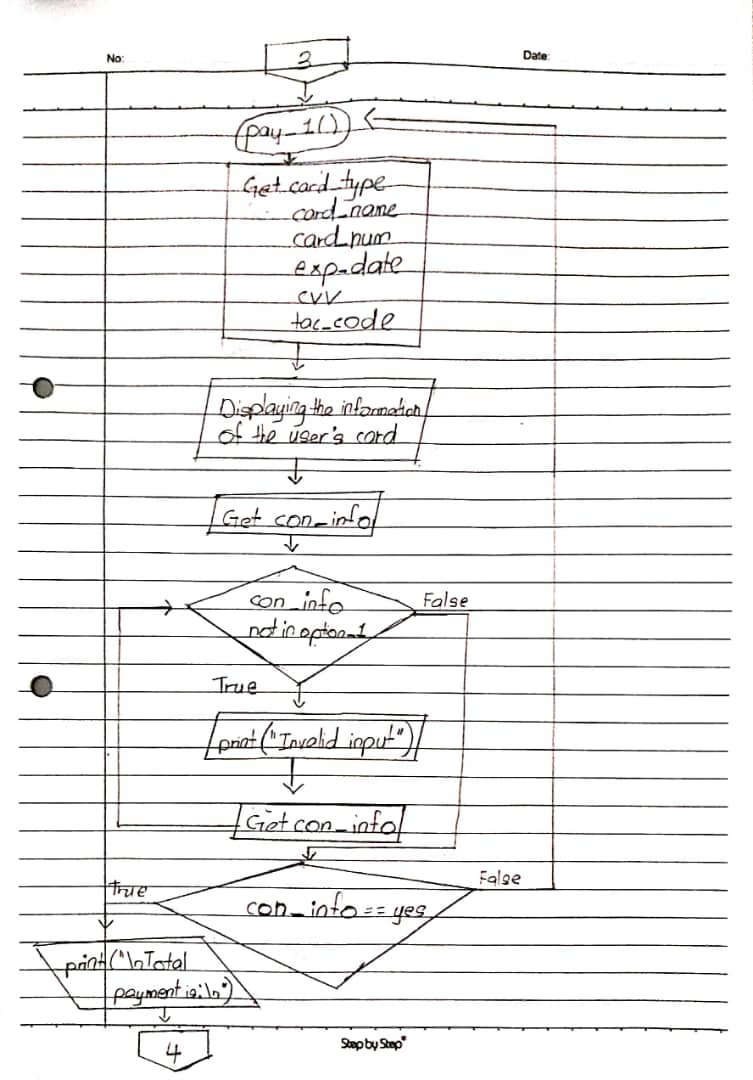 No:
3
Date:
pay_1()
Get card_type
card_name
card_num
exp_date
cvv
tac_code
Displaying the information
of the user's card
Get con_info
con_info
not in option_1
False
True
print("Invalid input")
Get con_info
True
False
con_info == yes
print("\nTotal
payment is:\n")
4
Step by Step